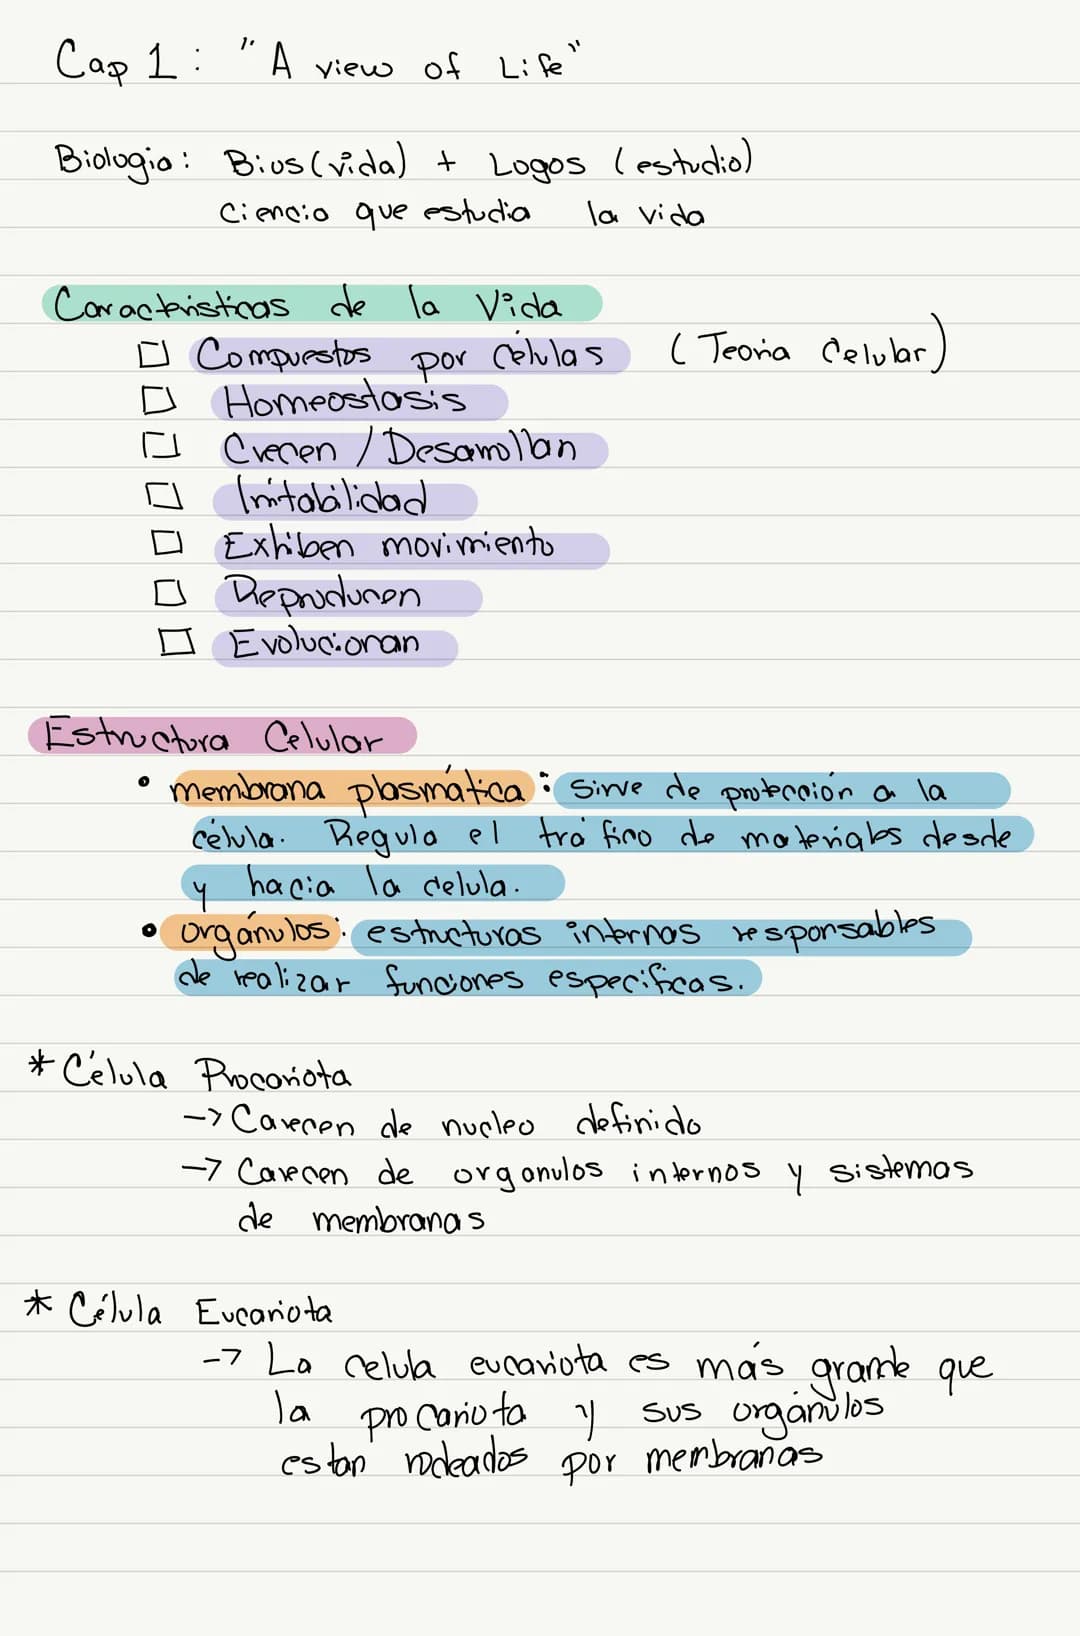 Cap 1: "A view of Life"
Biologia: Bios (vida) + Logos (estudio)
Ciencia que estudia la vida
Caracteristicas de la Vida
Compuestos por células (Teoria Celular)
Homeostasis
Crecen / Desarrollan
Irritabilidad
Exhiben movimiento
Reproducen
Evolucionan
Estructura Celular
• membrana plasmática: sirve de protección a la
célula. Regula el tráfico de materiales desde
y hacia la celula.
• orgánulos: estructuras internas responsables
de realizar funciones especificas.
* Célula Procariota
-> Carecen de nucleo definido
-> Carecen de organulos internos y sistemas
de membranas
* Célula Eucariota
-> La celula eucariota es más grande que
la procariota y sus orgánulos
estan rodeados por membranas